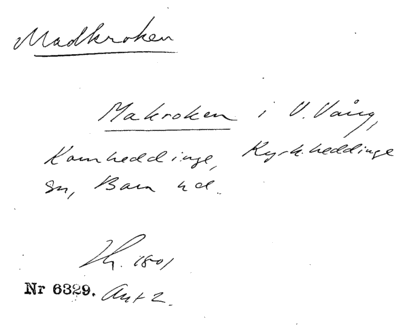 Madkroken
Makroken i V. Vång,
Kornheddinge, Kyrkheddinge
sn, Bara hd.
1801
Nr 6329. Ant 2.